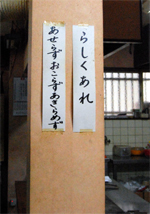 らしくあれ
あせらずおこらずあきらめず